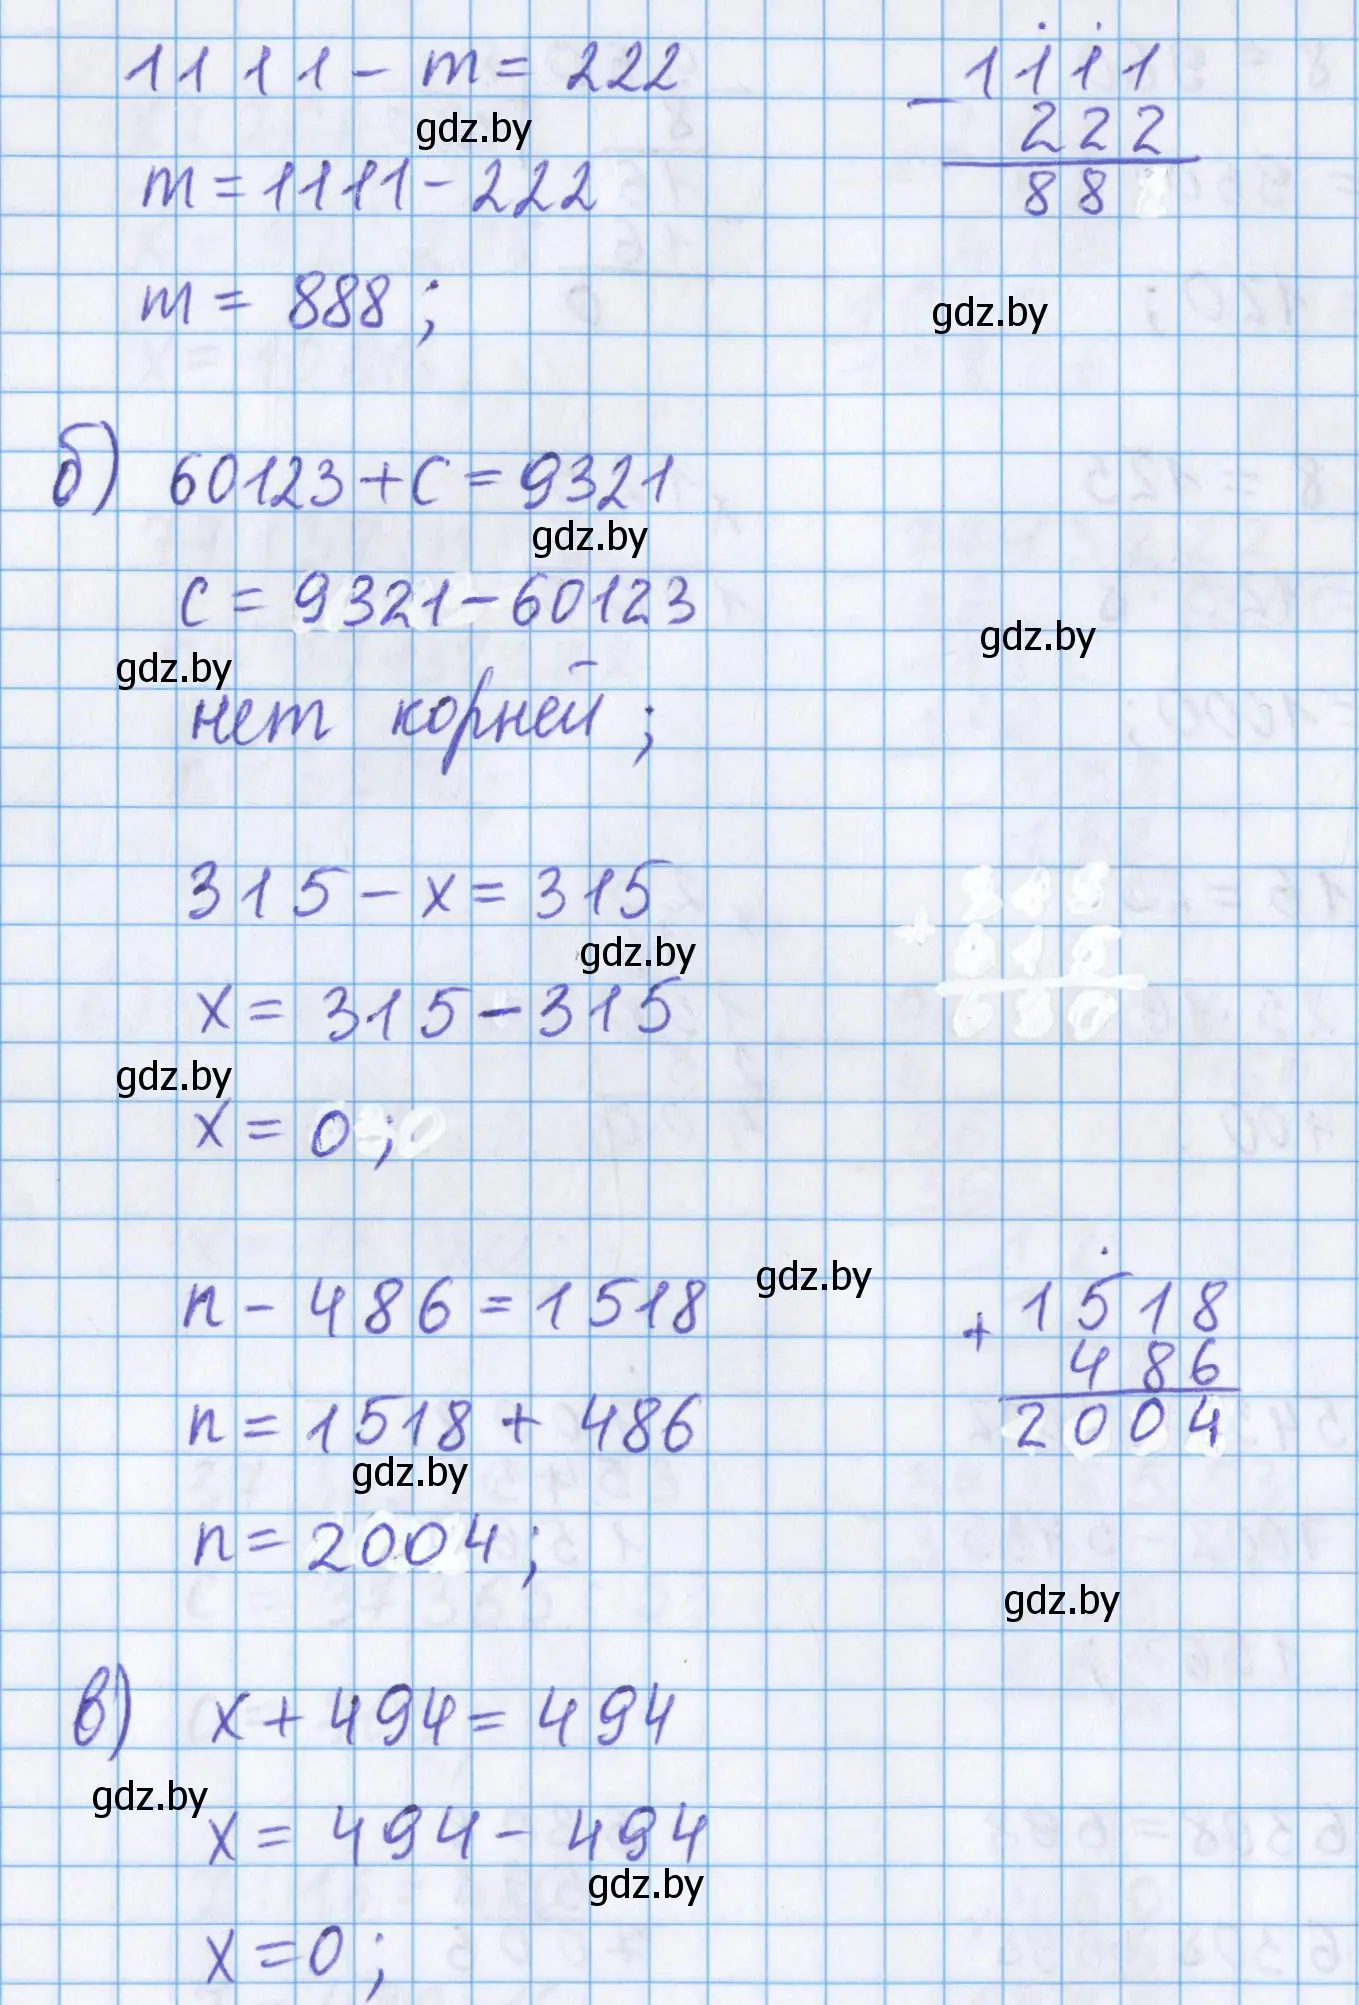 1111 - m = 222
gdz.by
m = 1111 - 222
m = 888 ;
- 1111
222
88
gdz.by
б) 60123 + c = 9321
gdz.by
c = 9321 - 60123
gdz.by
gdz.by
нет корней ;
315 - x = 315
gdz.by
x = 315 - 315
gdz.by
x = 0 ;
n - 486 = 1518
gdz.by
n = 1518 + 486
gdz.by
n = 2004 ;
+ 1518
486
2004
gdz.by
в) x + 494 = 494
gdz.by
x = 494 - 494
gdz.by
x = 0 ;